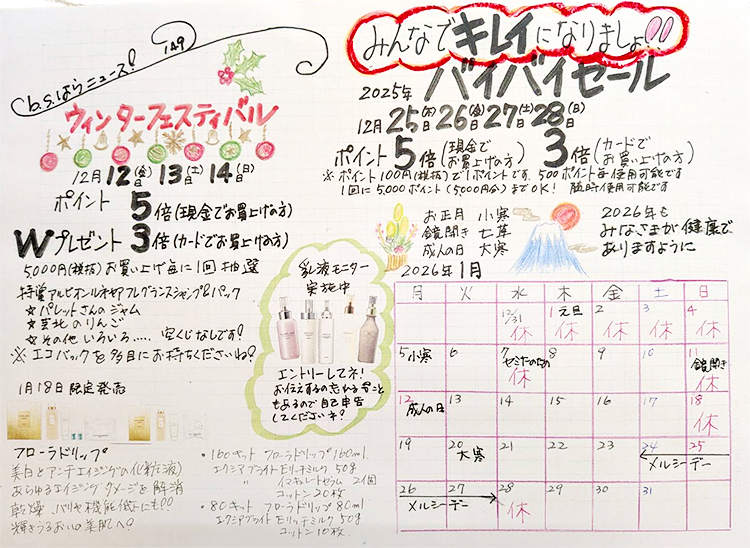 b.s.はらニュース! 149
ウィンターフェスティバル
12月12日(金)13日(土)14日(日)
ポイント5倍(現金でお買上げの方)
Wプレゼント3倍(カードでお買上げの方)
5,000円(税抜)お買い上げ毎に1回抽選
☆パレットさんのジャム
のりんご
☆その他いろいろ..... 空くじなしです!
※エコバックを多目にお持ちくださいね?
1月18日限定発売
フローラドリップ
美白とアンチエイジングの(化粧液)
あらゆるエイジングダメージを解消
乾燥、バリヤ機能低下にも!!
輝きうるおいの美肌へ?
乳液モニター
実施中
エントリーしてネ!
お伝えするの忘れる
もあるので自己申告
してくださいネ?
・160キット フローラドリップ160ml
50g
〃 2個
コットン20枚
・80キット フローラドリップ80ml
50g
コットン10枚
みんなでキレイになりましょ!!
バイバイセール
2025年
12月25日(木)26日(金)27日(土)28日(日)
ポイント5倍(現金でお買上げの方)3倍(カードでお買上げの方)
※ポイント100円(税抜)で1ポイントです。500ポイント毎使用可能です
1回に5,000ポイント(5,000円分)までOK! 随時使用可能です
お正月 小寒
鏡開き 七草
成人の日 大寒
2026年も
みなさまが健康で
ありますように
2026年1月
月 火 水 木 金 土 日
12/31 休 1元旦 休 2 休 3 休 4 休
5小寒 6 7 セミナーのため 休 8 9 10 11 鏡開き 休
12 成人の日 13 14 15 16 17 18 休
19 20 大寒 21 22 23 24 25 メルシーデー
26 27 メルシーデー 28 休 29 30 31